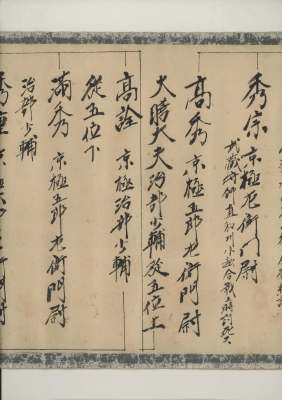 秀宗 京極左衛門尉
武蔵守師直和州水越合戦之時討死
高秀 京極五郎左衛門尉
大膳大夫治部少輔従五位上
高詮 京極治部少輔
従五位下
満秀 京極五郎左衛門尉
治部少輔